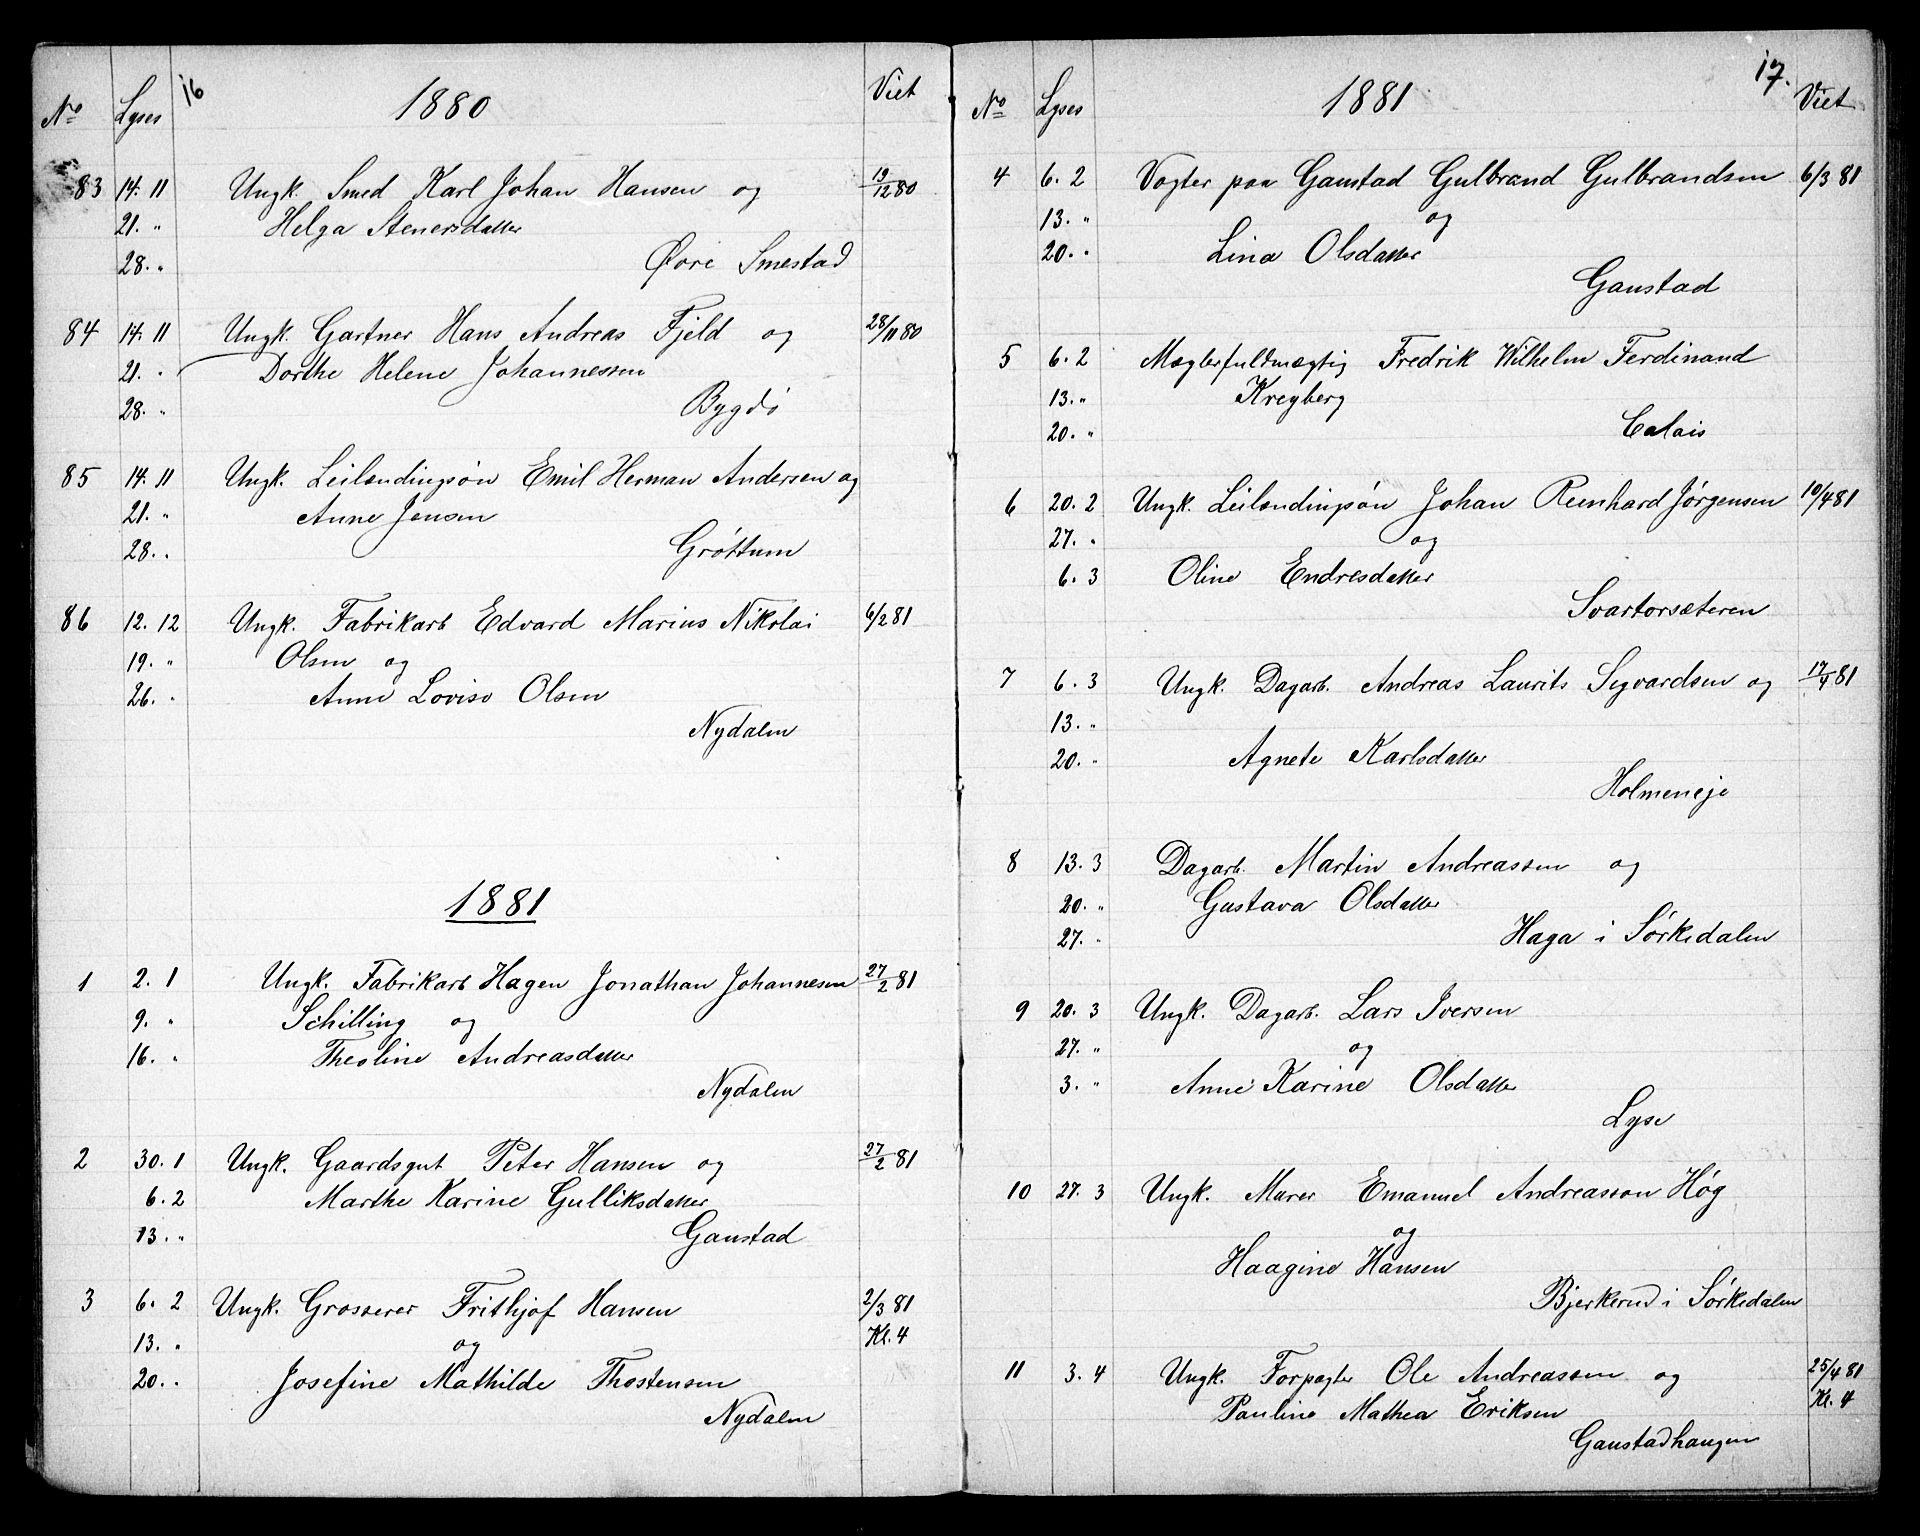 16
No Lyses 1880 Viet
83 14. 11 Ungk. Smed Karl Johan Hansen og 19/12 80
21. " Helga Stenersdatter
28. " Övre Smestad
84 14. 11 Ungk. Gartner Hans Andreas Fjeld og 28/11 80
21. " Dorthe Helene Johannessen
28. " Bygdö
85 14. 11 Ungk. Leilændingsön Emil Herman Andersen og
21. " Anne Jensen
28. " Gröttum
86 12. 12 Ungk. Fabrikarb Edvard Marius Nikolai 6/2 81
19. " Olsen og
26. " Anne Lovise Olsen
Nydalen
1881
1 2. 1 Ungk. Fabrikarb Hagen Jonathan Johannesen 27/2 81
9. " Schilling og
16. " Theoline Andreasdatter
Nydalen
2 30. 1 Ungk. Gaardsgut Peter Hansen og 27/2 81
6. 2 Marthe Karine Gulliksdatter
13. " Gaustad
3 6. 2 Ungk. Grosserer Frithjof Hansen 2/3 81
13. " og Kl. 4
20. " Josefine Mathilde Thostensen
Nydalen
17.
No Lyses 1881 Viet
4 6. 2 Vogter paa Gaustad Gulbrand Gulbrandsen 6/3 81
13. " og
20. " Lina Olsdatter
Gaustad
5 6. 2 Mæglerfuldmægtig Fredrik Wilhelm Ferdinand
13. " Kreyberg
20. " Calais
6 20. 2 Ungk. Leilændingsön Johan Reinhard Jörgensen 10/4 81
27. " og
6. 3 Oline Endresdatter
Svartorsæteren
7 6. 3 Ungk. Dagarb. Andreas Laurits Sigvardsen og 17/4 81
13. "
20. " Agnete Karlsdatter
Holmeneje
8 13. 3 Dagarb. Martin Andreassen og
20. " Gustava Olsdatter
27. " Haga i Sörkedalen
9 20. 3 Ungk. Dagarb. Lars Iversen
27. " og
3. " Anne Karine Olsdatter
Lyse
10 27. 3 Ungk. Murer Emanuel Andreasson Hög
og
Haagine Hansen
Bjerkerud i Sörkedalen
11 3. 4 Ungk. Forpagter Ole Andreassen og 25/4 81
Pauline Mathea Eriksen Kl. 4
Gaustadhaugen